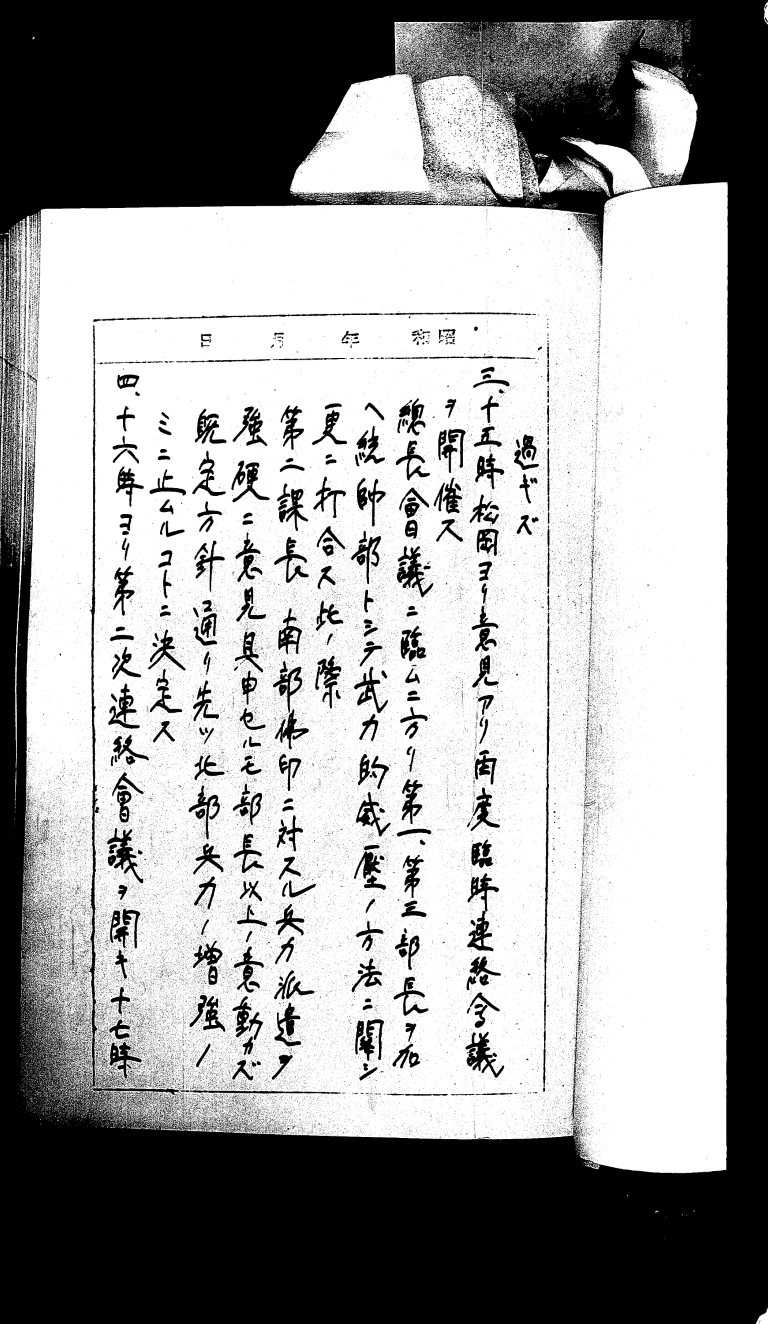 昭和　年　月　日
過ギズ
三、十五時松岡ヨリ意見アリ再度臨時連絡会議
ヲ開催ス
總長會議ニ臨ムニ方リ第一、第三部長ヲ加
ヘ統帥部トシテ武力的威壓ノ方法ニ關シ
更ニ打合ス此ノ際
第二課長　南部佛印ニ対スル兵力派遣ヲ
強硬ニ意見具申セルモ部長以上ノ意動カズ
既定方針通リ先ツ北部兵力ノ増強ノ
ミニ止ムルコトニ決定ス
四、十六時ヨリ第二次連絡會議ヲ開キ十七時